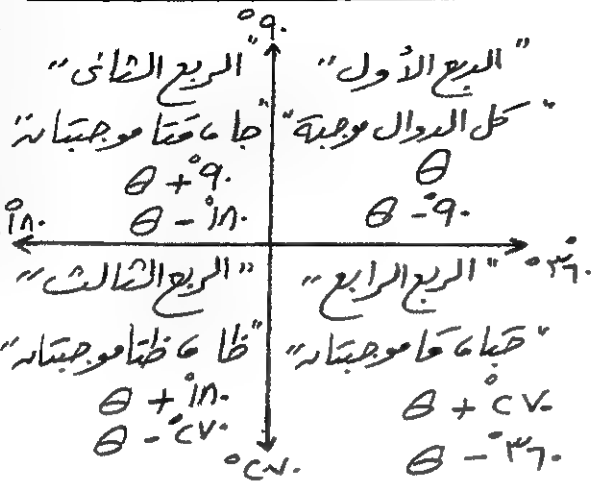 °٩٠
"الربع الأول"
"كل الدوال موجبة"
θ
٩٠° - θ
"الربع الثانى"
"جا ، قتا موجبتان"
٩٠° + θ
١٨٠° - θ
١٨٠°
°٣٦٠
"الربع الثالث"
"ظا ، ظتا موجبتان"
١٨٠° + θ
٢٧٠° - θ
"الربع الرابع"
"جتا ، قا موجبتان"
٢٧٠° + θ
٣٦٠° - θ
°٢٧٠